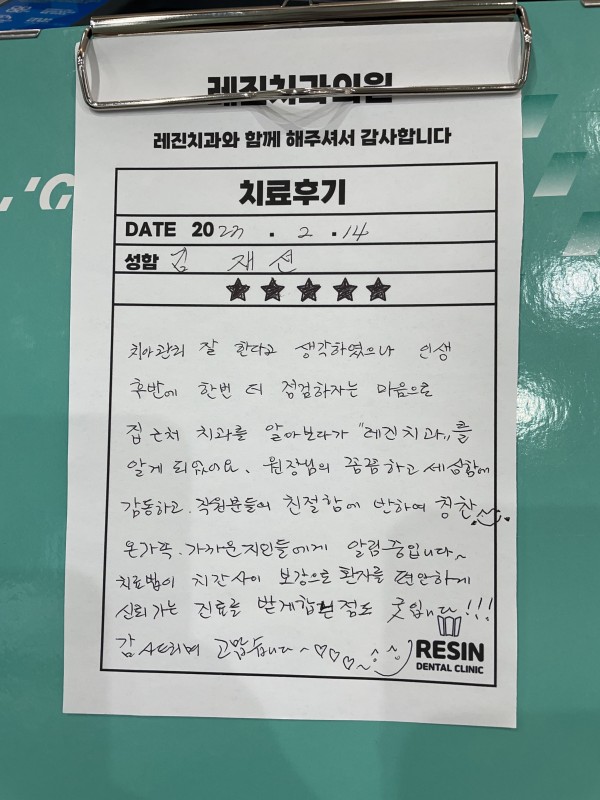 레진치과의원
레진치과와 함께 해주셔서 감사합니다
치료후기
DATE 2023 . 2 . 14
성함 김 재선
★★★★★
치아관리 잘 한다고 생각하였으나 인생
후반에 한번 더 점검하자는 마음으로
집 근처 치과를 알아보다가 "레진치과"를
알게 되었어요. 원장님의 꼼꼼하고 세심함에
감동하고. 직원분들의 친절함에 반하여 칭찬~
온가족. 가까운지인들에게 알림중입니다~
치료법이 치간사이 보강으로 환자를 편안하게
신뢰가는 진료를 받게 점도 굿입니다!!!
감사드리며 고맙습니다~♡♡♡~^^
RESIN
DENTAL CLINIC